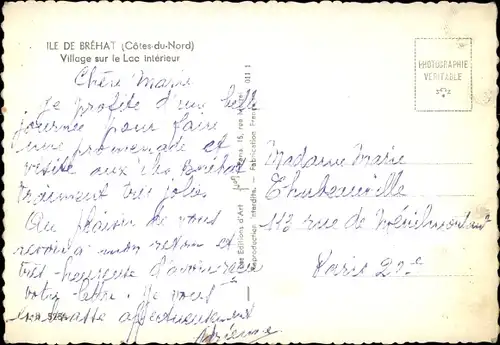 ILE DE BRÉHAT (Côtes-du-Nord)
Village sur le Lac intérieur
Chère Marie
Je profite d'une belle
journée pour faire
une promenade et
visite aux iles Bréhat
vraiment très jolies
Au plaisir de vous
revoir à mon retour et
très heureuse d'avoir
votre lettre. Je vous
embrasse affectueusement
Adrienne
Les Editions d'Art
Paris 15, rue
011 1
Reproduction interdite. - Fabrication
PHOTOGRAPHIE
VÉRITABLE
Madame Marie
112 rue de Ménilmontant
Paris 20e